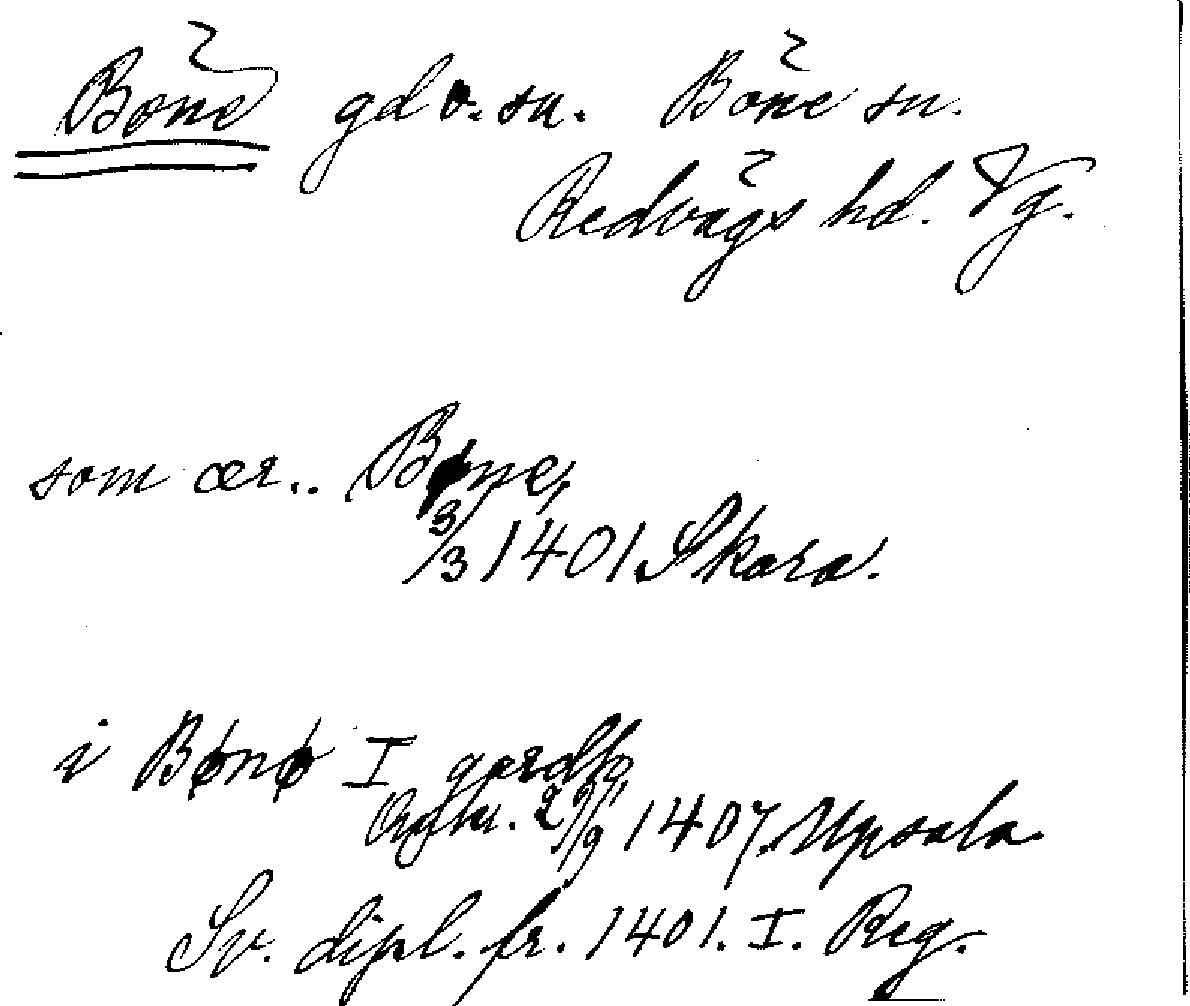 Böne gd o. sn. Böne sn.
Redvägs hd. Vg.
som ær.. Bøne,
3/3 1401 Skara.
i Bønø I gardh
29/9 1407 Upsala
Sv. dipl. fr. 1401. I. Reg.